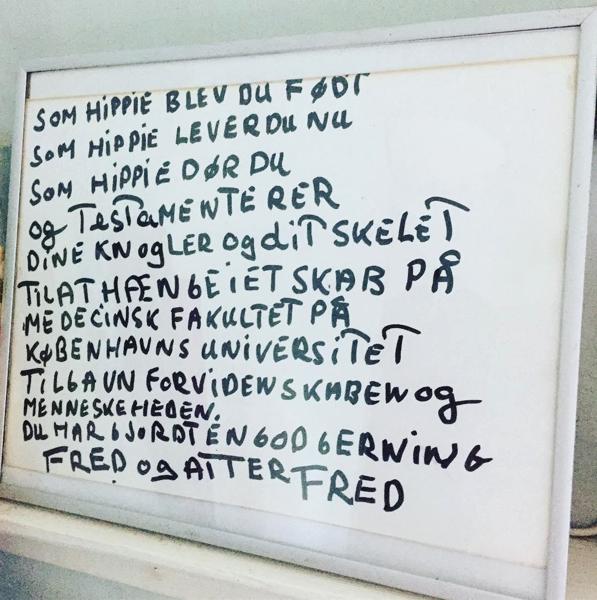 SOM HiPPiE BLEV DU FØDT
SOM HIPPIE LEVER DU NU
SOM HIPPIE DØR DU
og TeSTaMENTERER
DiNE KNogLER og diT SKELET
TiL AT HÆNGE i ET SKAB PÅ
MEDECiNSK FAKULTET PÅ
KØBENHAVNS UNiVERSiTET
TiL GAVN FOR ViDENSKABEN og
MENNESKEHEDEN.
DU HAR GJORDT EN GOD GERNiNG
FRED og ATTER FRED